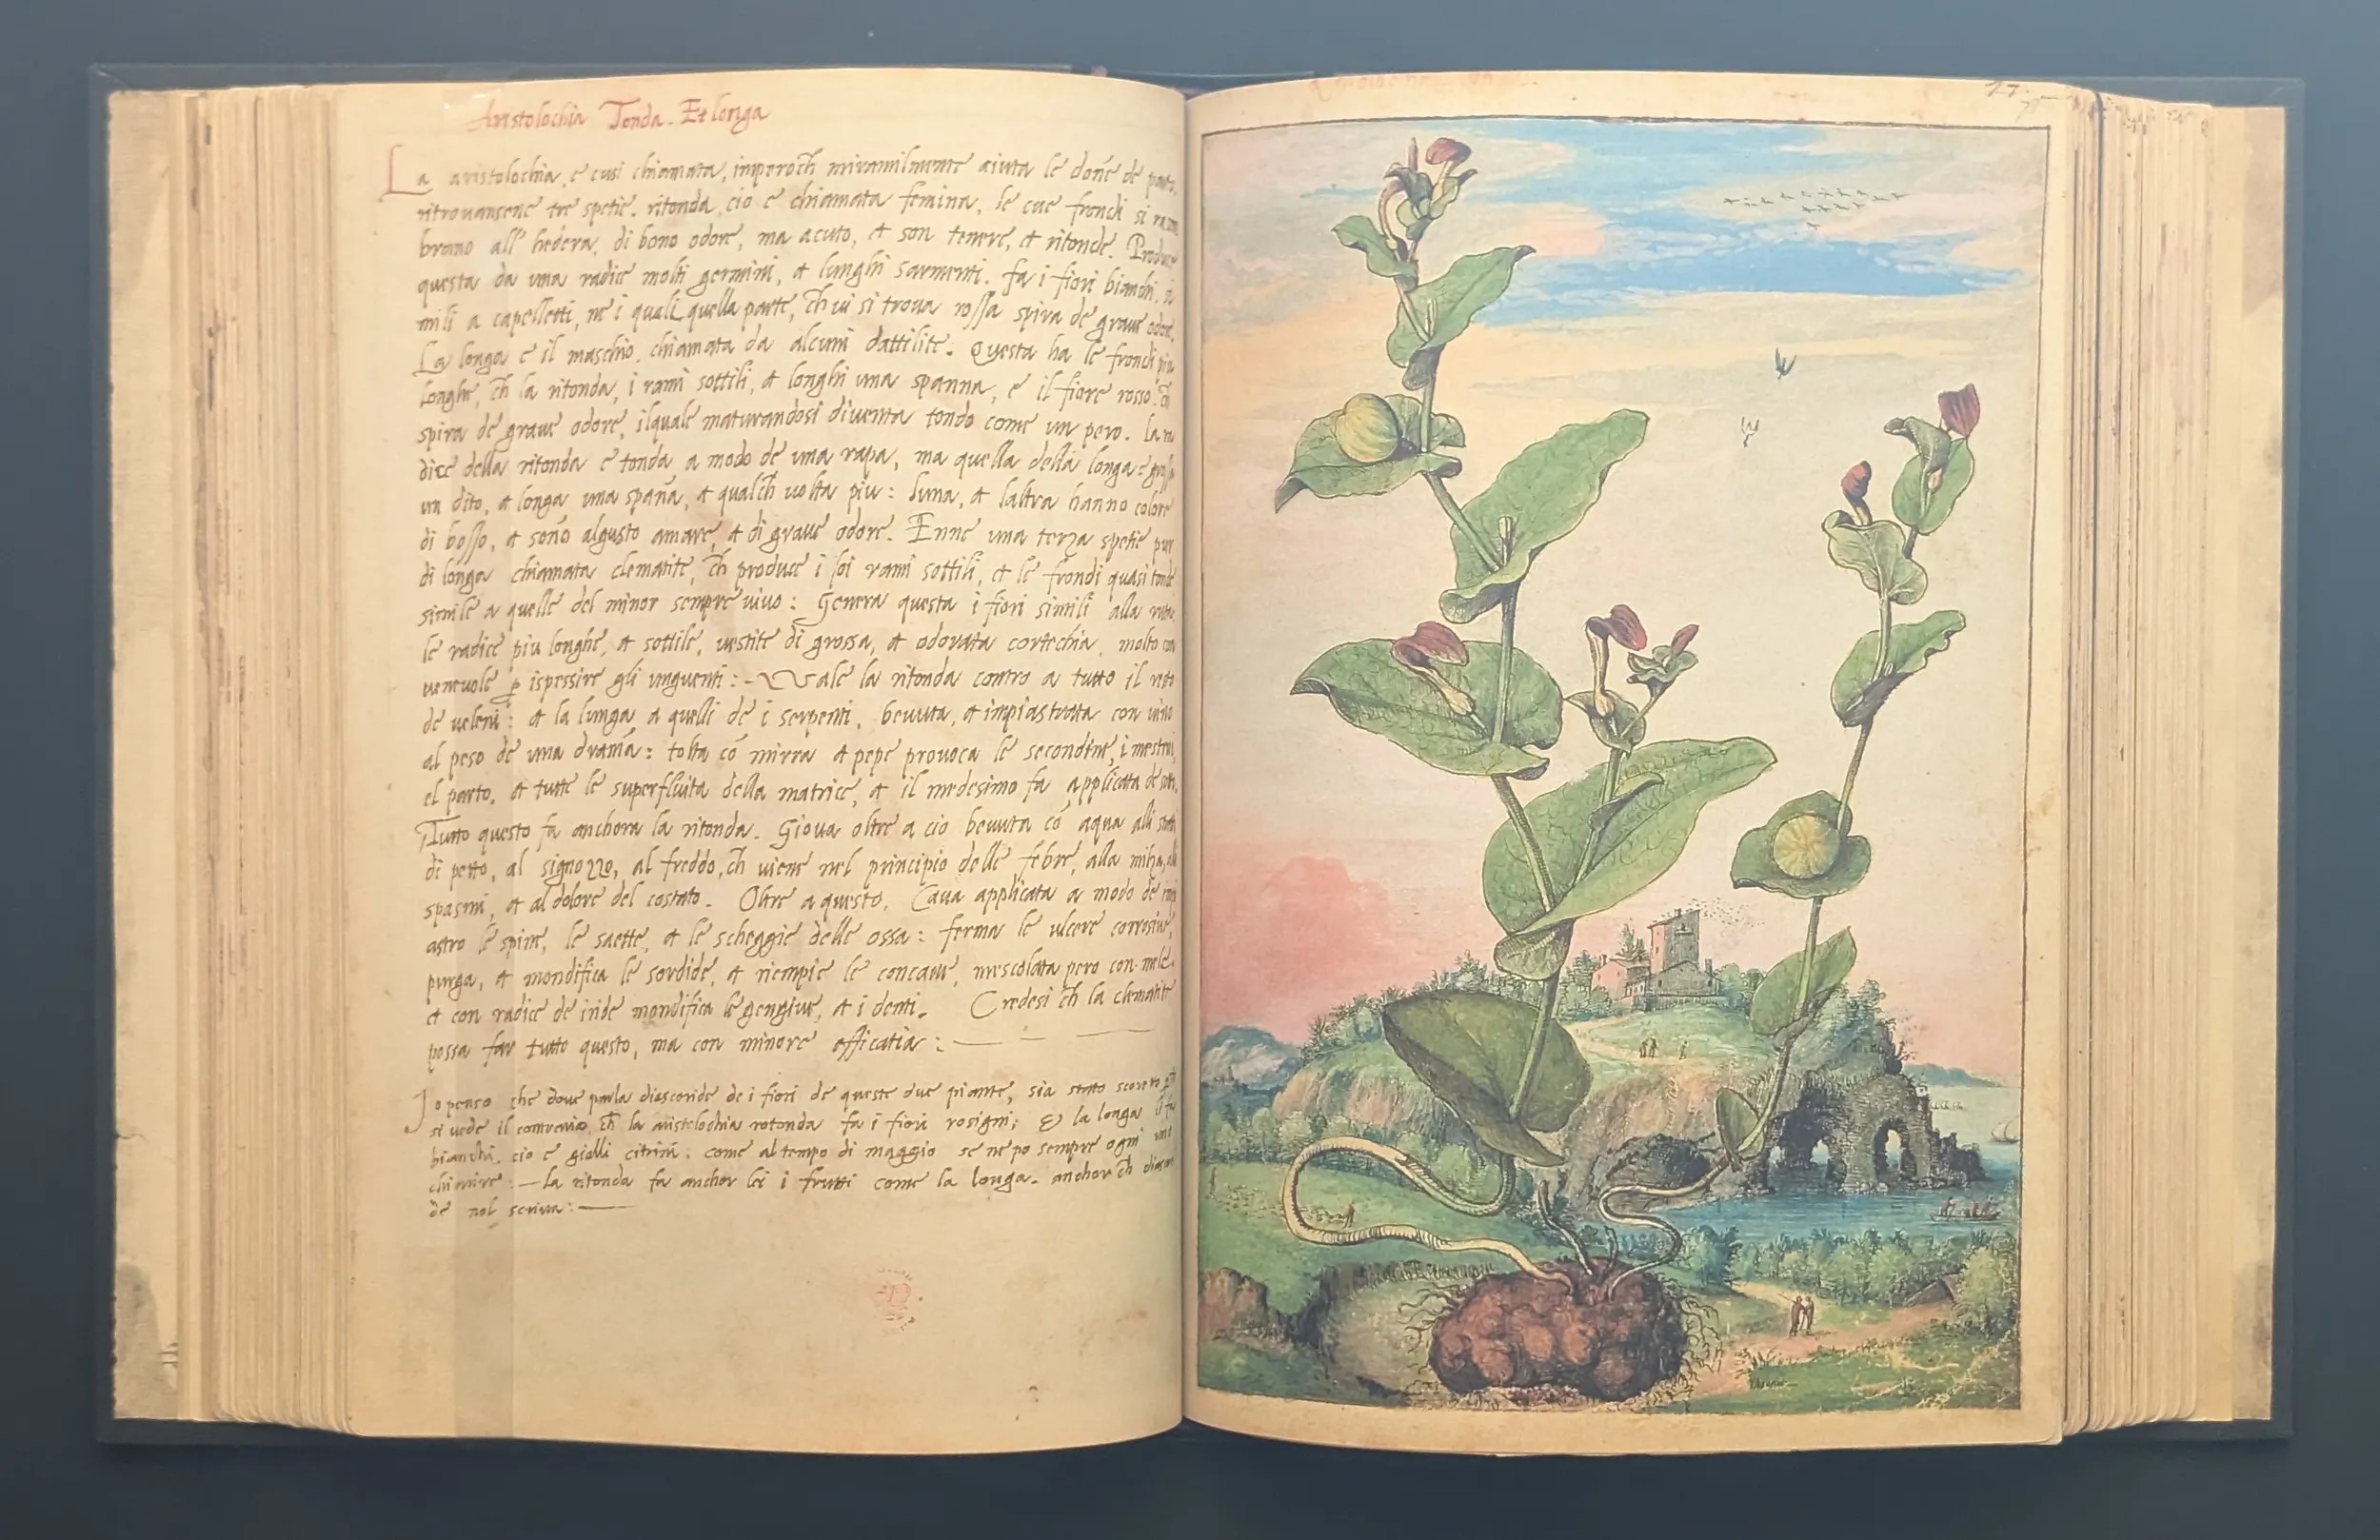 Aristolochia Tonda. Et longa
La aristolochia, e cusi chiamata, imperoch mirauilmente aiuta le doñe de parto,
ritrouansene tre spetie. ritonda, cio e chiamata femina, le cue frondi si
brano all' hedera, di bono odore, ma acuto, et son tenere, et ritonde. Produce
questa da una radice molti germini, et lunghi sarmenti. fa i fiori bianchi, si
mili a capelletti, ne i quali quella parte, ch ui si troua rossa spira de graue odore.
La longa e il maschio, chiamata da alcuni dattilite. Questa ha le frondi piu
longhe, ch la ritonda, i rami sottili, et longhi una spanna, e il fiore rosso, ch
spira de graue odore, ilquale maturandosi diuenta tondo come un pero. la ra
dice della ritonda e tonda a modo de una rapa, ma quella della longa e grossa
un dito, et longa una spana, et qualch uolta piu: luna, et laltra hanno colore
di bosso, et sono algusto amare, et di graue odore. Enne una terza spetie pur
di longa chiamata clematite, ch produce i soi rami sottili, et le frondi quasi tonde
simile a quelle del minor sempre uiuo: Genera questa i fiori simili alla ruta
le radice piu longhe, et sottile, uestite di grossa, et odorata cortechia, molto con
ueneuole p ispessire gli unguenti: Vale la ritonda contro a tutto il resto
de ueleni: et la lunga a quelli de i serpenti, beuuta, et impiastrata con uino
al peso de una drama: tolta co mirra et pepe prouoca le secondine, i mestrui,
el parto, et tutte le superfluita della matrice, et il medesimo fa applicata de sotto.
Tutto questo fa anchora la ritonda. Gioua oltre a cio beuuta co aqua alli stretti
di petto, al signozzo, al freddo, ch uiene nel principio delle febre, alla milza, alli
spasmi, et al dolore del costato. Oltre a questo, Caua applicata a modo de
astro le spine, le saette, et le scheggie delle ossa: ferma le ulcere corrosiue,
purga, et mondifica le sordide, et riempie le concaue, mescolata pero con mele.
et con radice de iride mondifica le gengiue, et i denti. Credesi ch la clematite
possa far tutto questo, ma con minore efficatia:
Io penso che doue parla dioscoride de i fiori de queste due piante, sia stato scoretto
si uede il contrario, ch la aristolochia rotonda fa i fiori rosigni; & la longa
bianchi, cio e gialli citrini: come al tempo di maggio se ne po sempre ogni uno
chiarire: la ritonda fa anchor lei i frutti come la longa. anchor ch
de nol scriua: